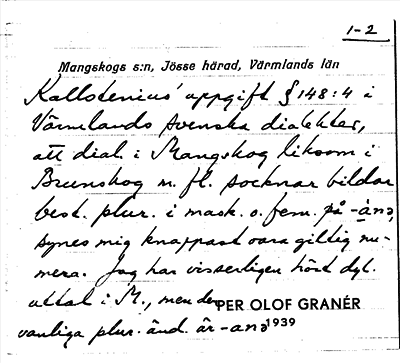 1-2
Mangskogs s:n, Jösse härad, Värmlands län
Kallstenius' uppgift § 148:4 i
Värmlands svenska dialekter,
att dial. i Mangskog liksom i
Brunskog m. fl. socknar bildar
best. plur. i mask. o. fem. på -ànə,
synes mig knappast vara giltig nu-
mera. Jag har visserligen hört dyl.
uttal i M., men den
PER OLOF GRANÉR
vanliga plur. änd. är -anə
1939